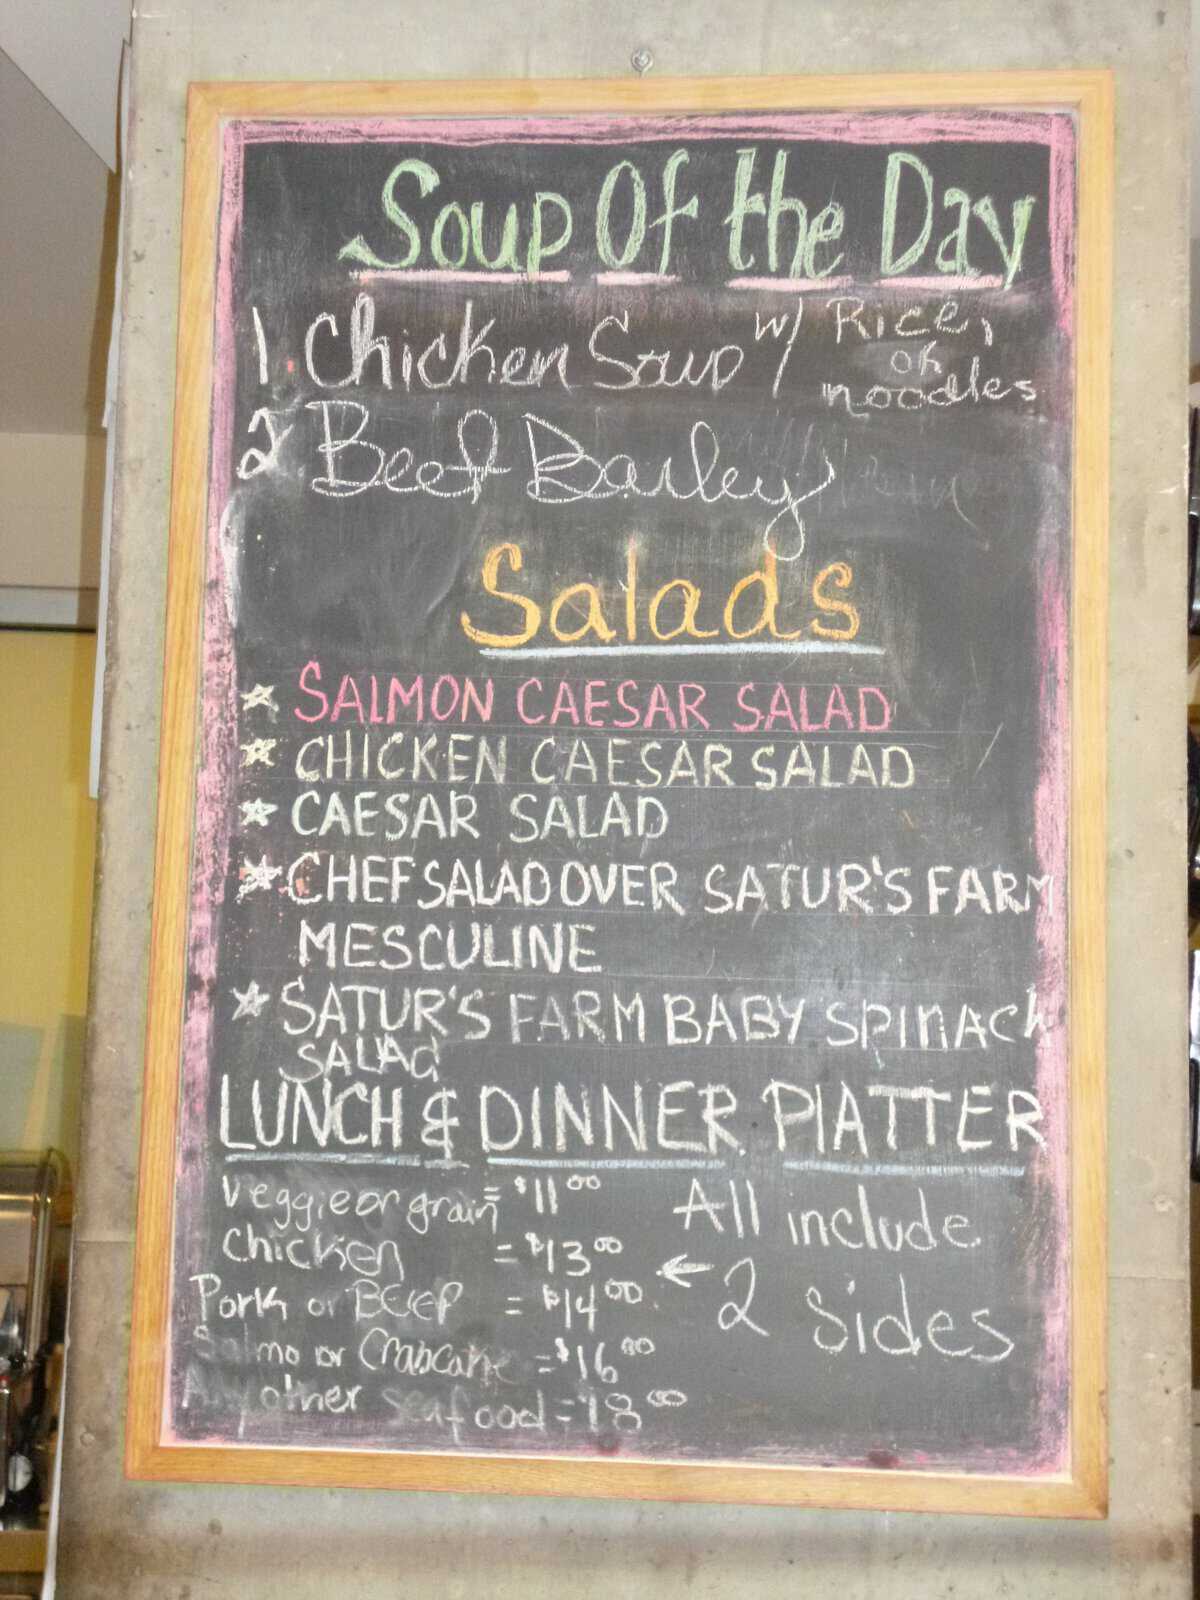 Soup Of the Day
1. Chicken Soup w/ Rice, or noodles
2 Beef Barley
Salads
SALMON CAESAR SALAD
CHICKEN CAESAR SALAD
CAESAR SALAD
CHEF SALAD OVER SATUR'S FARM
MESCULINE
SATUR'S FARM BABY SPINACH
SALAD
LUNCH & DINNER PLATTER
Veggie or grain = $11.00
Chicken = $13.00
Pork or BEEF = $14.00
Salmo or Crabcake = $16.00
Any other seafood = $18.00
All include
← 2 Sides